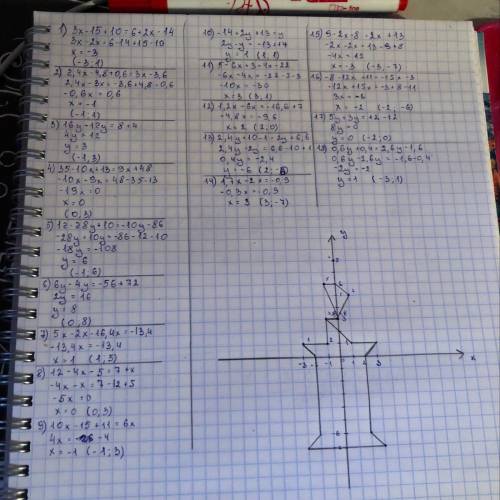 1) 3x-15+10=6+2x-14
3x-2x=6-14+15-10
x=-3
(-3,1)
2) 2,4x-4,8+0,6=3x-3,6
2,4x-3x=-3,6+4,8-0,6
-0,6x=0,6
x=-1
(-1;1)
3) 16y-12y=8+4
4y=12
y=3
(-1,3)
4) 35-10x+13=9x+48
-10x-9x=48-35-13
-19x=0
x=0
(0,3)
5) 12-28y+10=-10y-86
-28y+10y=-86-12-10
-18y=-108
y=6
(-1,6)
6) 6y-4y=-56+72
2y=16
y=8
(0,8)
7) 5x-2x-16,4x=-13,4
-13,4x=-13,4
x=1 (1,5)
8) 12-4x-5=7+x
-4x-x=7-12+5
-5x=0
x=0 (0,3)
9) 10x-15+11=6x
4x= -4
x=-1 (-1;3)
10) -14+2y+13=y
2y-y=-13+14
y=1 (1,1)
11) 5-6x+3=4x-22
-6x-4x=-22-3-5
-10x=-30
x=3 (3,1)
12) 1,2x-6x=-16,6+7
+4,8x=-9,6
x=2 (2,0)
13) 2,4y+10-1=2y+6,6
2,4y-2y=6,6-10+1
0,4y=-2,4
y=-6 (2;-6)
14) 1,7x-2x=-0,9
-0,3x=-0,9
x=3 (3;-7)
15) 9-2x-8=2x+13
-2x-2x=13-9+8
-4x=12
x=-3 (-3,-7)
16) -8-12x+11=-15x-3
-12x+15x=-3+8-11
3x=-6
x=-2 (-2;-6)
17) 5y+3y=12-12
8y=0
y=0 (-2,0)
18) 0,6y+0,4=2,6y-1,6
0,6y-2,6y=-1,6-0,4
-2y=-2
y=1 (-3,1)
y
x